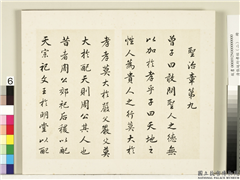 聖治章第九
曾子曰敢問聖人之德無
以加於孝乎子曰天地之
性人為貴人之行莫大於
孝孝莫大於嚴父嚴父莫
大於配天則周公其人也
昔者周公郊祀后稷以配
天宗祀文王於明堂以配
6